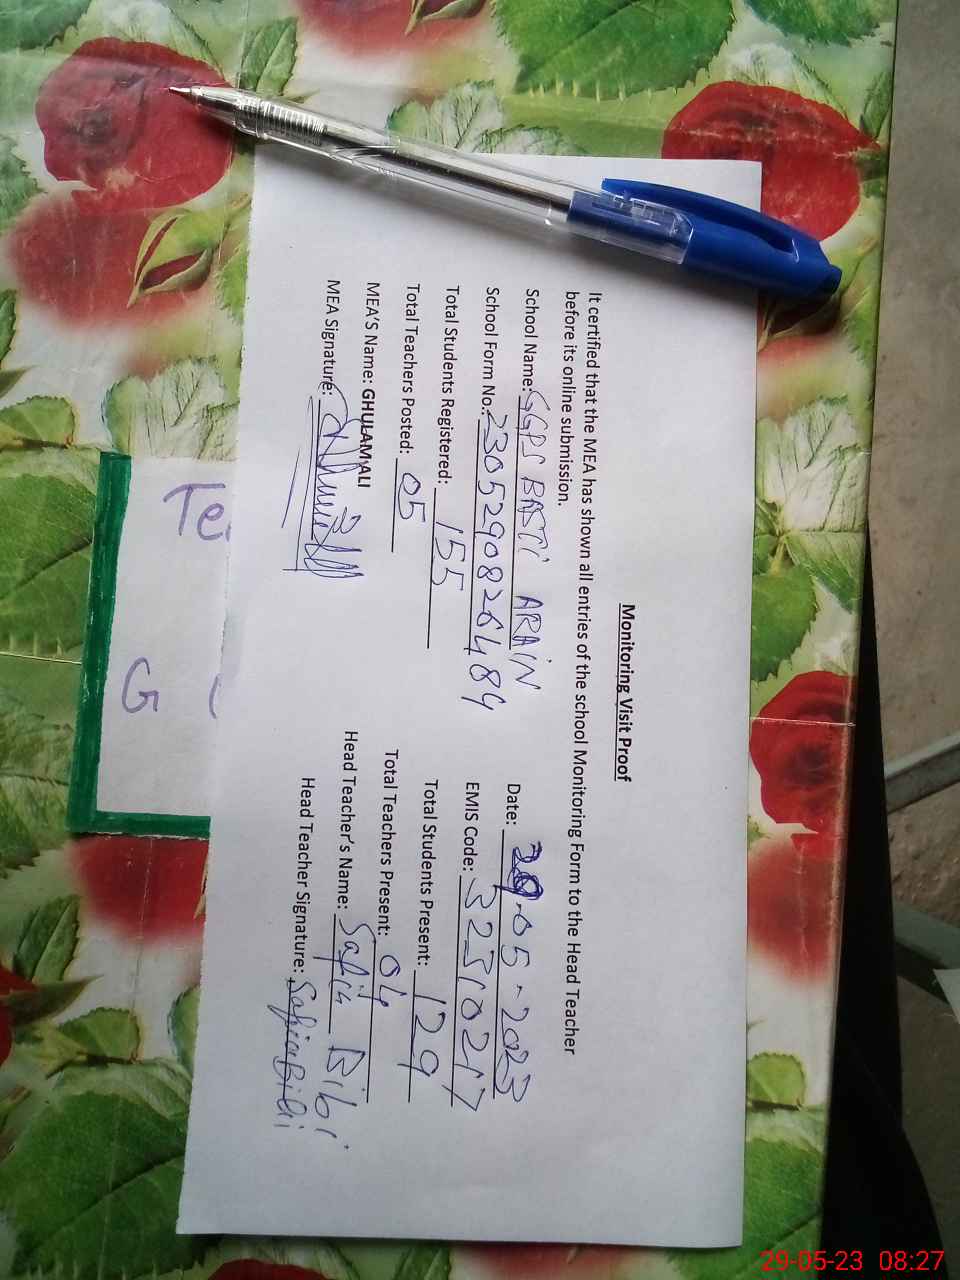 Monitoring Visit Proof
It certified that the MEA has shown all entries of the school Monitoring Form to the Head Teacher
before its online submission.
School Name: GGPS BASTI ARAIN Date: 29-05-2023
School Form No: 2305290826489 EMIS Code: 32310217
Total Students Registered: 155 Total Students Present: 129
Total Teachers Posted: 05 Total Teachers Present: 04
MEA'S Name: GHULAM ALI Head Teacher's Name: Safia Bibi
MEA Signature: Head Teacher Signature: Safia Bibi
Te
G
29-05-23 08:27